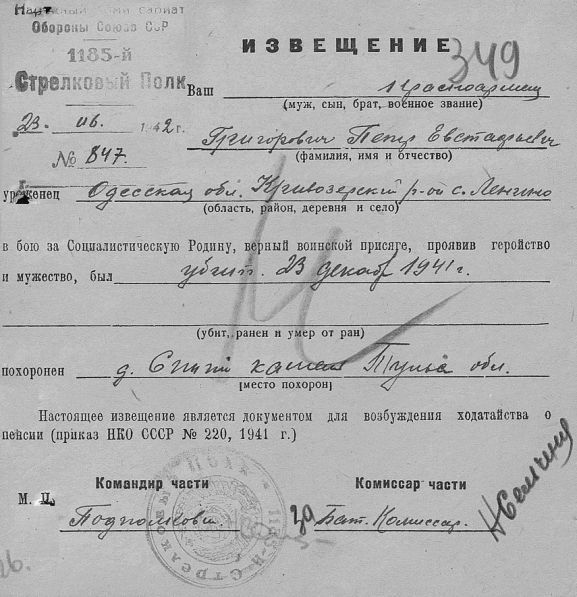 Народный Комиссариат
Обороны Союза ССР
1185-й
Стрелковый Полк
23. 06. 1942 г.
№ 847.
ИЗВЕЩЕНИЕ
349
Ваш красноармеец
(муж, сын, брат, военное звание)
Григорович Петр Евстафьевич
(фамилия, имя и отчество)
уроженец Одесская обл. Кривозерский р-он с. Ленино
(область, район, деревня и село)
в бою за Социалистическую Родину, верный воинской присяге, проявив геройство
и мужество, был убит. 23 декаб 1941 г.
(убит, ранен и умер от ран)
похоронен д. Тульс обл.
[место похорон]
Настоящее извещение является документом для возбуждения ходатайства о
пенсии (приказ НКО СССР № 220, 1941 г.)
Командир части
Комиссар части
М. П.
Подполковн.
за Бат. Комиссар.